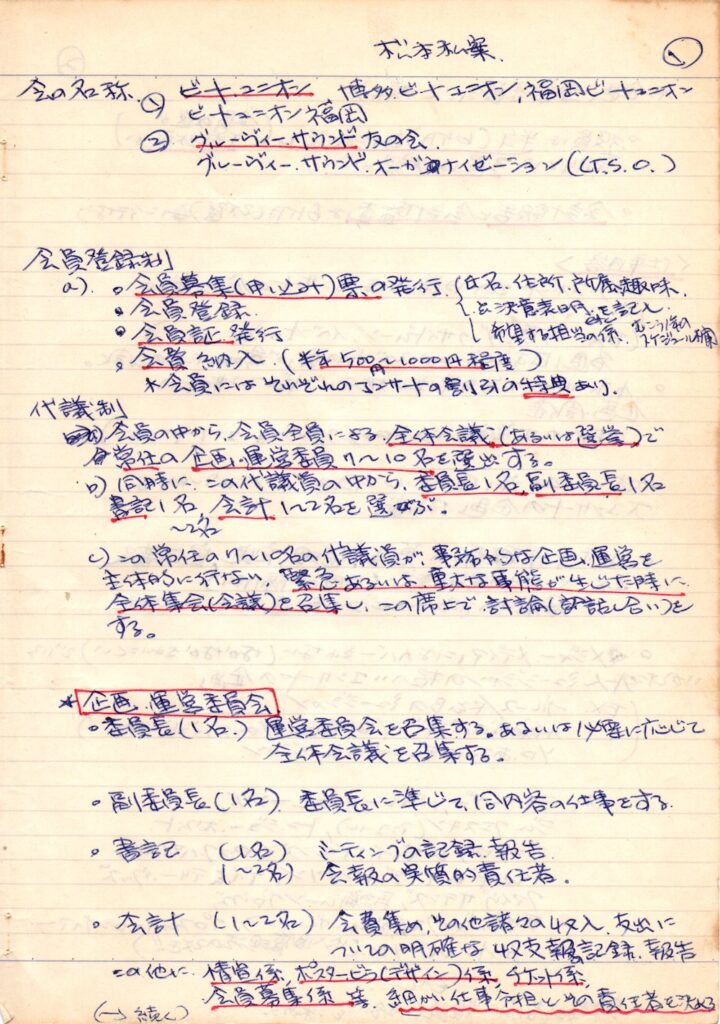 松本私案. ①
会の名称. ① ビート.ユニオン 博多.ビートユニオン, 福岡ビートユニオン
ビートユニオン福岡
② グルーヴィー.サウンド友の会.
グルーヴィー.サウンド.オーガナイゼーション(G.S.O.)
会員登録制
a). ○会員募集(申し込み)票の発行. 氏名、住所、所属、趣味、
○会員登録. と決意表明、を記し
○会員証発行 希望する担当の係. むこう1年の
スケジュール
○会費納入. (半年500円〜1000円程度)
*会員にはそれぞれのコンサートの割引の特典あり.
代議制
a) 会員の中から、会員全員による全体会議(あるいは選挙)で
常任の企画、運営委員7〜10名を選出する。
b) 同時に、この代議員の中から、委員長1名、副委員長1名
書記1名、会計1〜2名を選ぶ。
〜2名
c) この常任の7〜10名の代議員が、事務的な企画、運営を
主体的に行ない、緊急あるいは重大な事態が生じた時に
全体集会(会議)を召集し、この席上で、討論(話し合い)を
する。
* 企画、運営委員会
○委員長(1名.) 運営委員会を召集する。あるいは必要に応じて
全体会議を召集する。
○副委員長(1名) 委員長に準じて、同内容の仕事をする.
○書記 (1名) ミーティングの記録.報告.
(〜2名) 会報の実質的責任者.
○会計 (1〜2名) 会費集め,その他諸々の収入、支出に
ついての明確な収支記録、報告
この他に、情宣係、ポスタービラ(デザイン)係、チケット係、
会員募集係等、細かい仕事分担とその責任者を決める
(→続く)